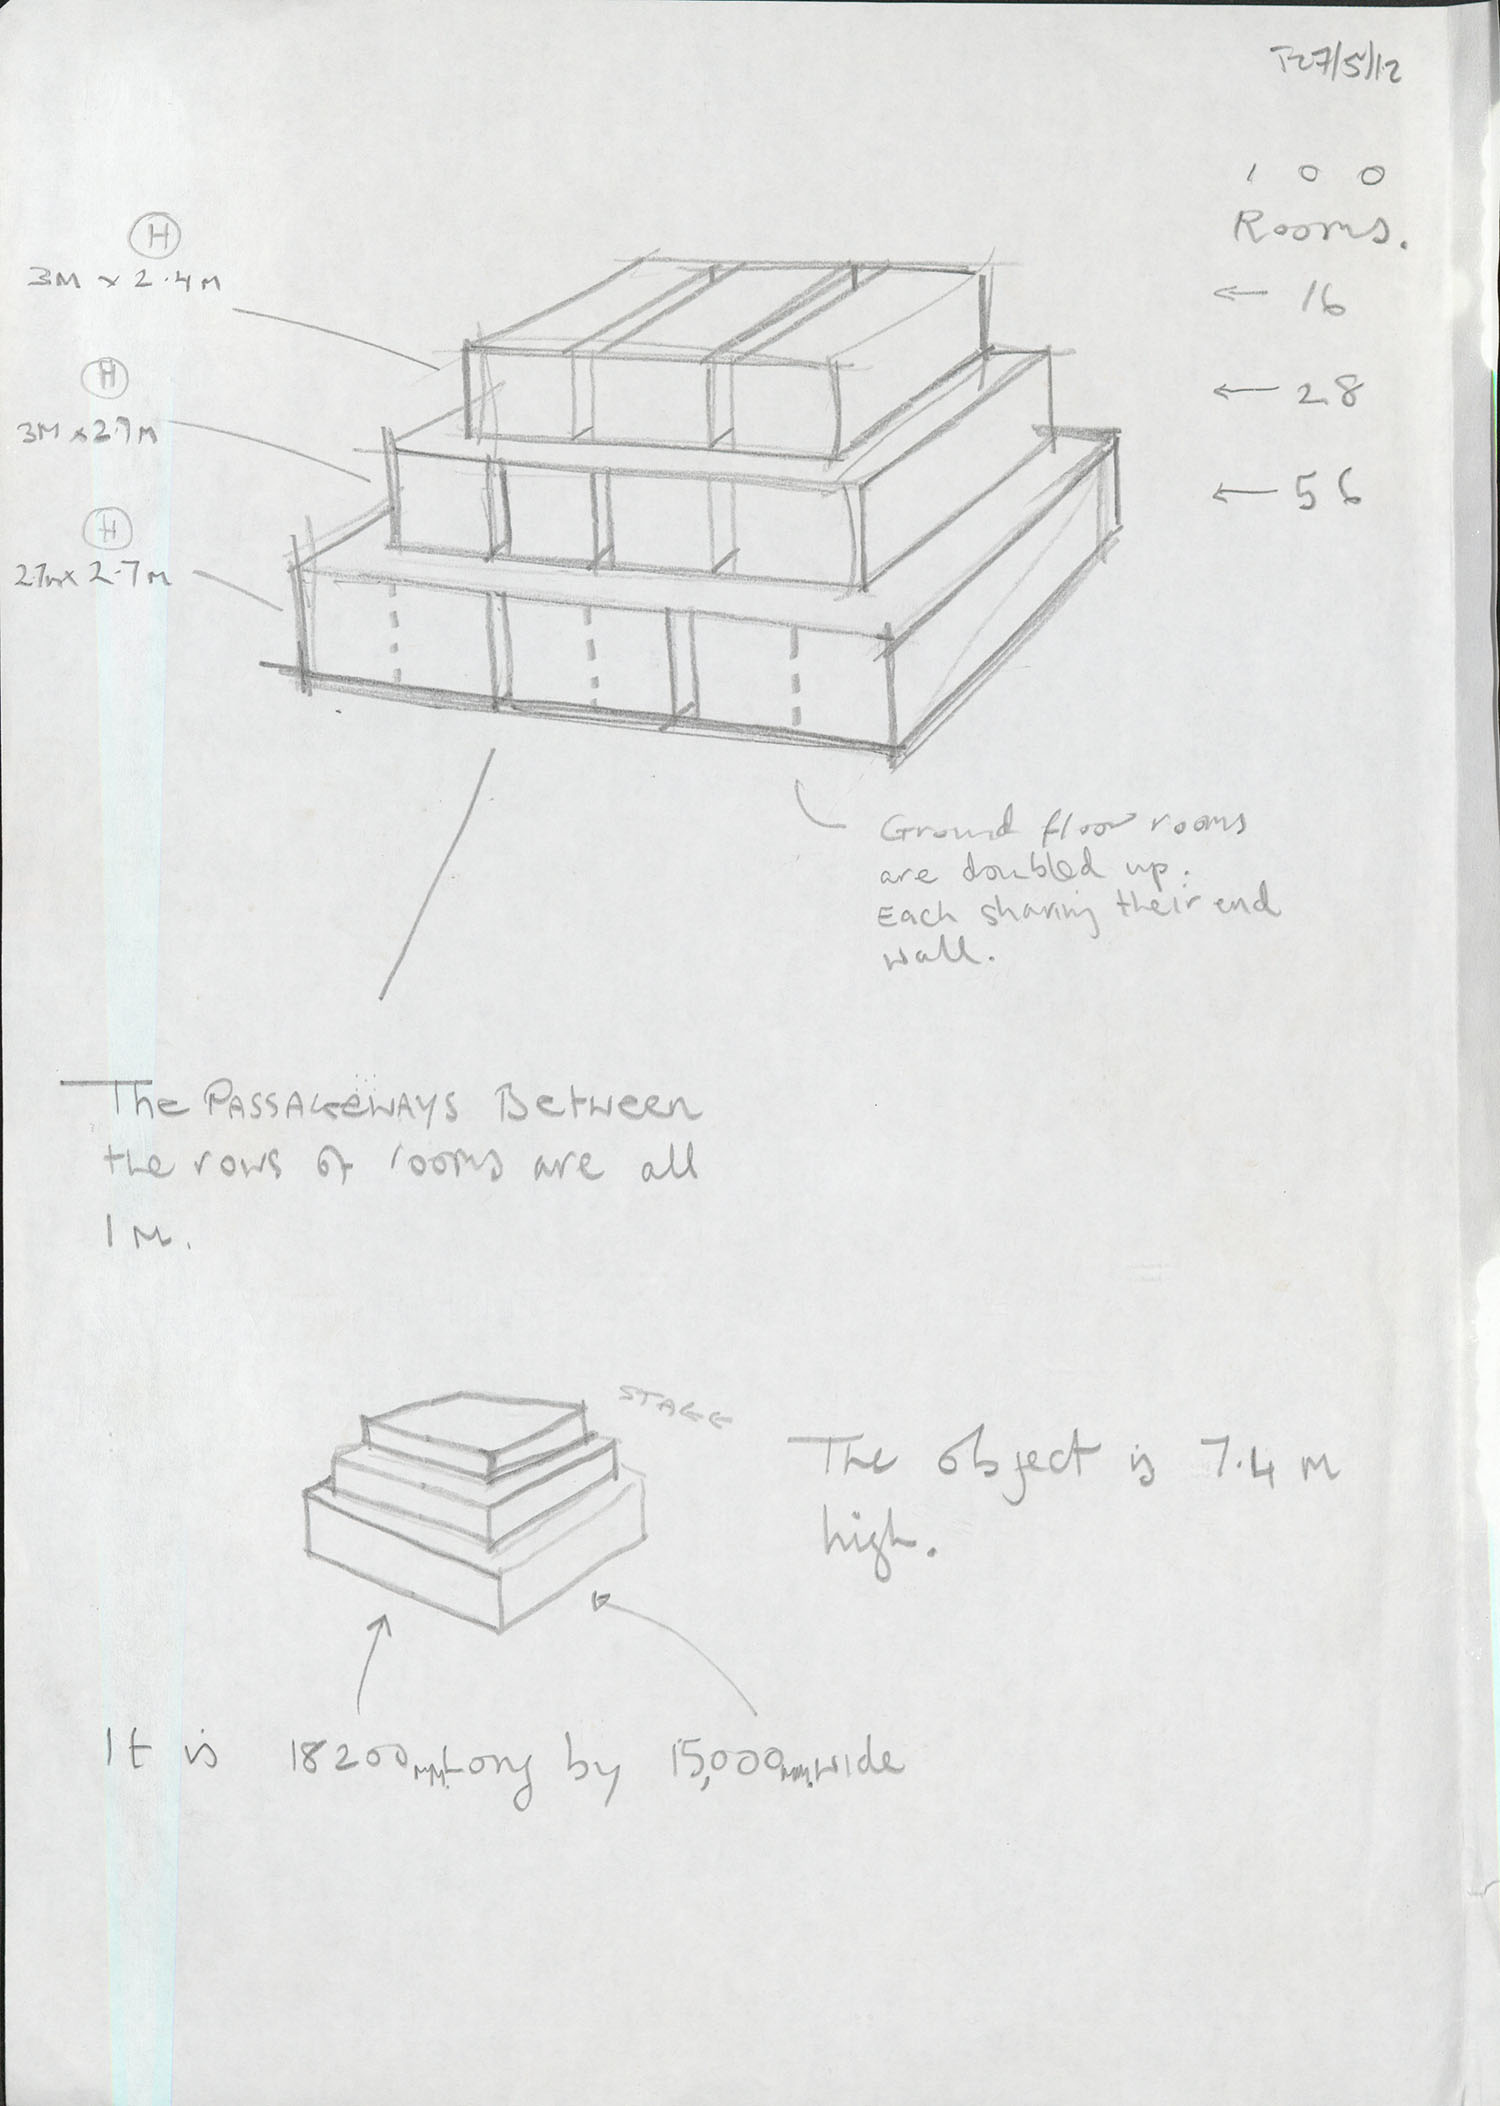 T27/5/12
1 0 0
Rooms.
← 16
← 28
← 56
H
3M x 2.4M
H
3M x 2.7M
H
27m x 2.7m
Ground floor rooms
are doubled up.
Each sharing their end
wall.
The PASSAGEWAYS Between
the rows of rooms are all
1M.
STAGE
The object is 7.4 M
high.
It is 18200MM Long by 15,000MM. wide